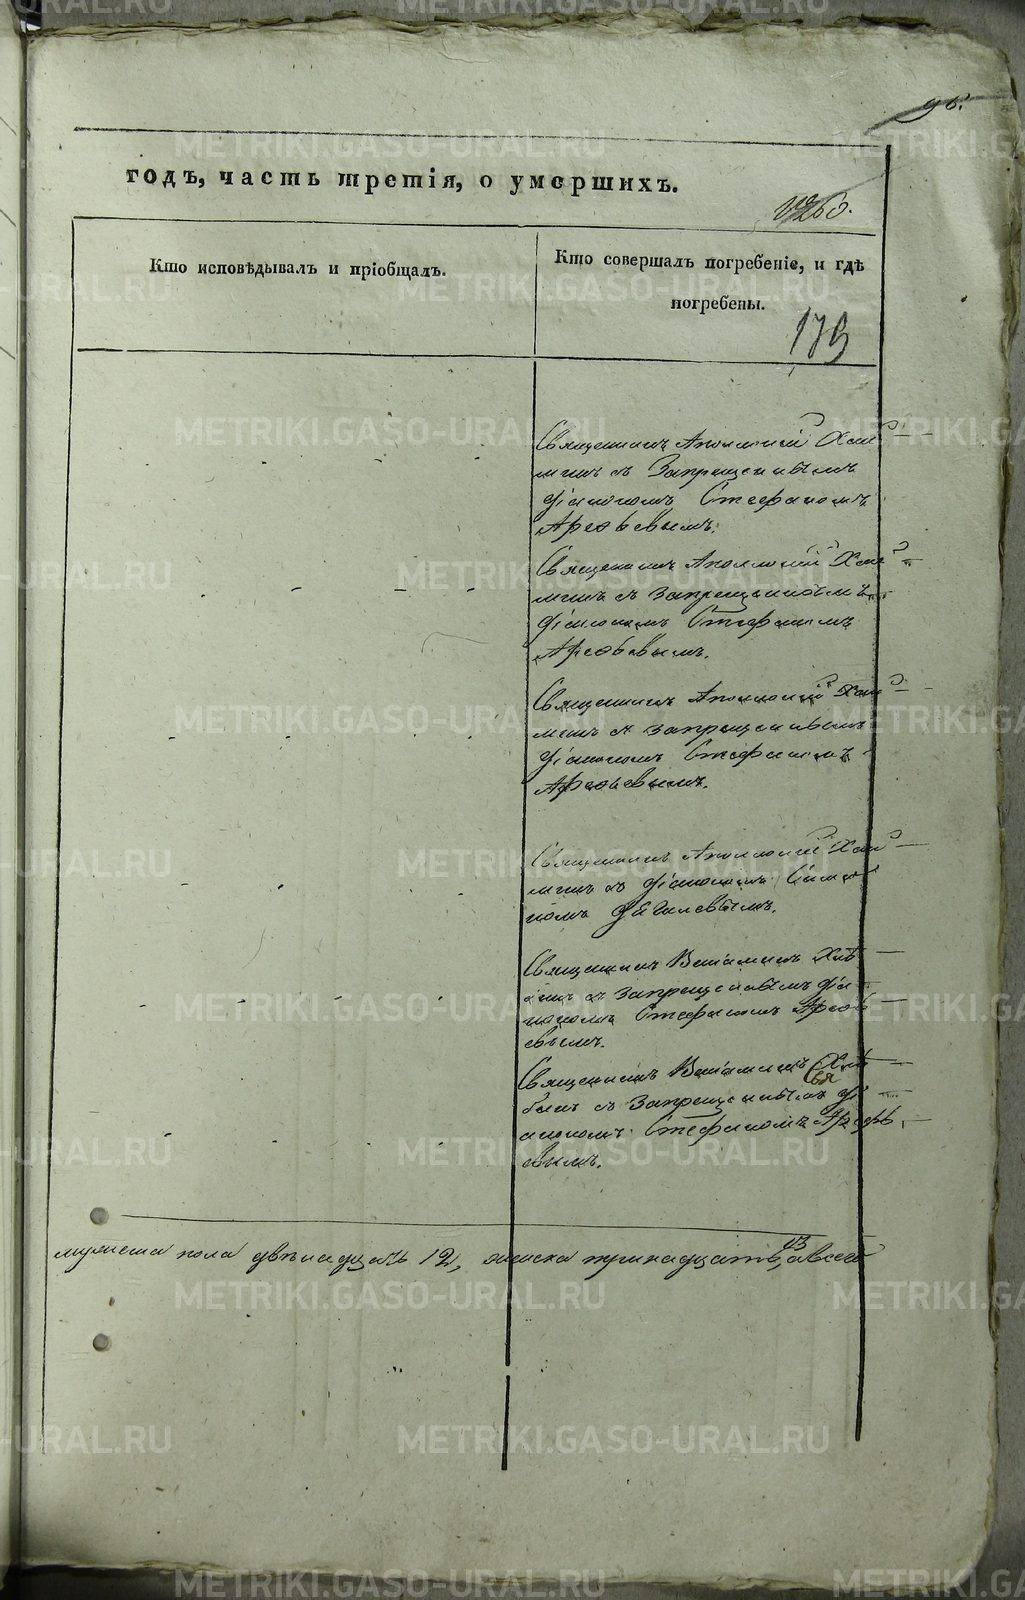 96.
годъ, часть третія, о умершихъ.
№ 260.
Кто исповѣдывалъ и пріобщалъ.
Кто совершалъ погребеніе, и гдѣ
погребены.
179
Священникъ Аполлоній
съ Запрещеннымъ
діакономъ Стефаномъ
Арефьевымъ.
Священникъ Аполлоній
съ запрещеннымъ
діакономъ Стефаномъ
Арефьевымъ.
Священникъ Аполлоній
съ запрещеннымъ
діакономъ Стефаномъ
Арефьевымъ.
Священникъ Аполлоній
съ діакономъ
номъ
Священникъ Веніаминъ Хлѣ
съ запрещеннымъ діа
кономъ Стефаномъ Арефь
евымъ.
Священникъ Веніаминъ Хлѣ
съ Запрещеннымъ ді
акономъ Стефаномъ Арефь
евымъ.
мужеска пола двѣнадцать 12, женска тринадцать, 13 а всего
METRIKI.GASO-URAL.RU